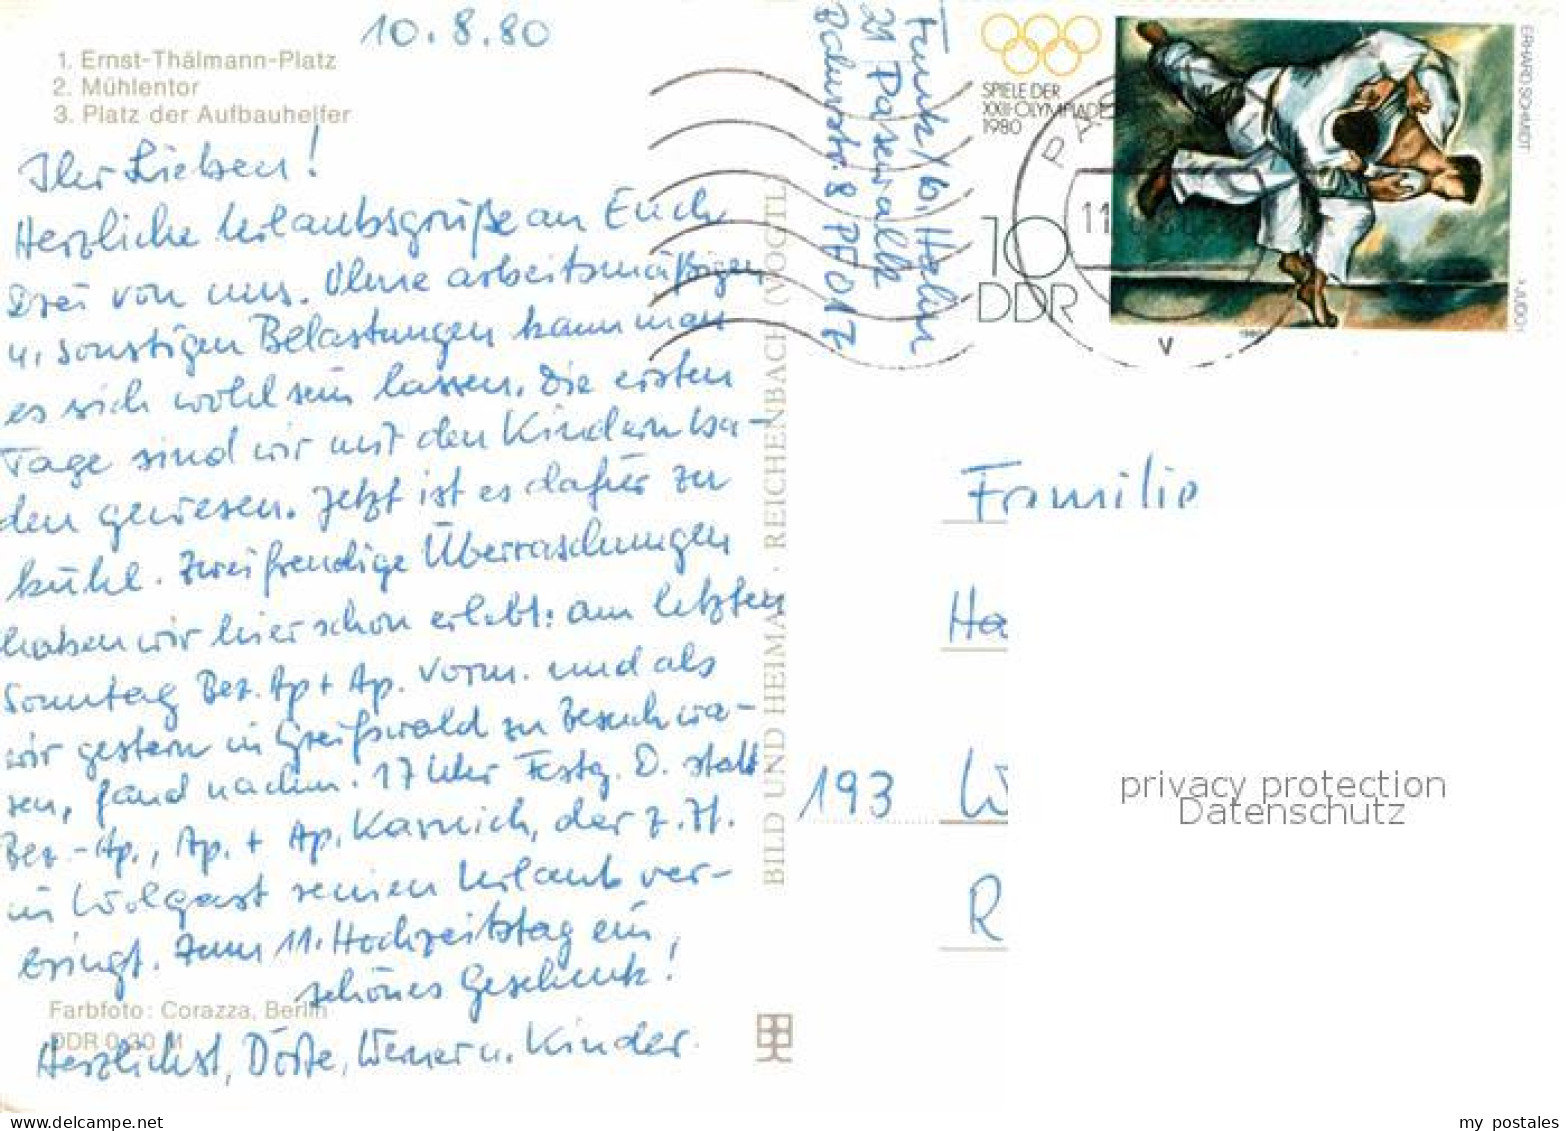 10.8.80
1. Ernst-Thälmann-Platz
2. Mühlentor
3. Platz der Aufbauhelfer
Ihr Lieben!
Herzliche Urlaubsgrüße an Euch
Drei von uns. Ohne arbeitsmäßigen
u. sonstigen Belastungen kann man
es sich wohl sein lassen. Die ersten
Tage sind wir mit den Kindern ba-
den gewesen. Jetzt ist es dafür zu
kühl. Zwei freudige Überraschungen
haben wir hier schon erlebt: am letzten
Sonntag Bez. Ap + Ap. vorm. und als
wir gestern in Greifswald zu Besuch wa-
ren, fand nachm. 17 Uhr Festg. D. statt
Bez.-Ap., Ap. + Ap. Karnich, der z. Zt.
in Wolgast seinen Urlaub ver-
bringt. Zum 11. Hochzeitstag ein
schönes Geschenk!
Herzlichst, Dörte, Werner u. Kinder.
Farbfoto: Corazza, Berlin
DDR 0,30 M
BILD UND HEIMAT · REICHENBACH (VOGTL)
21 Pasewalk
Bahnstr. 8 PF 017
SPIELE DER
XXII. OLYMPIADE
1980
10
DDR
ERHARD SCHMIDT
JUDO
1980
PAS
11
v
Familie
Ha
193 W
R
privacy protection
Datenschutz
my postales